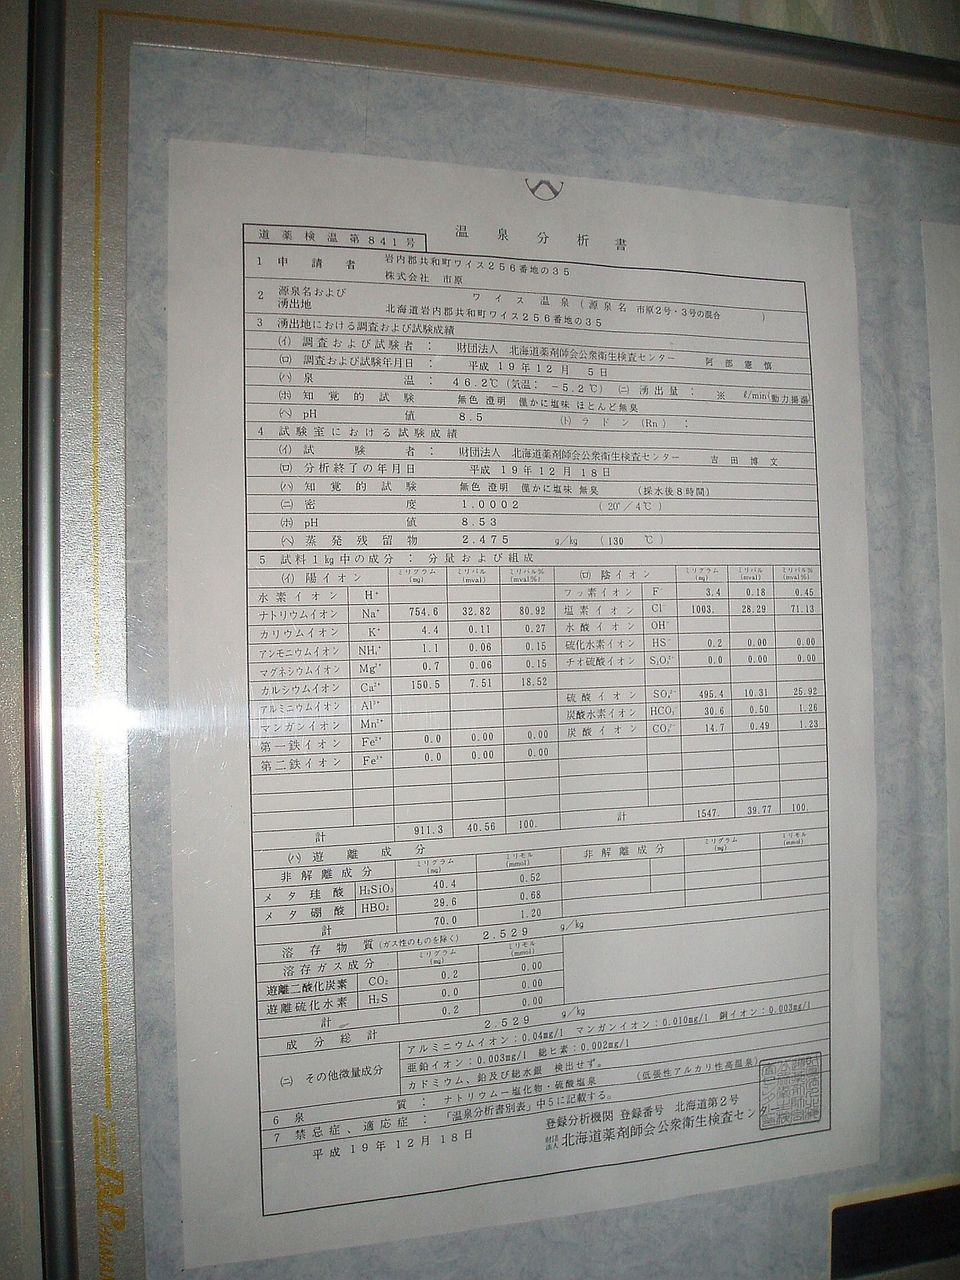 温泉分析書
道薬検温第841号
1 申請者 岩内郡共和町ワイス256番地の35
株式会社 市原
2 源泉名および湧出地 ワイス 温泉 (源泉名 市原2号・3号の混合 )
北海道岩内郡共和町ワイス256番地の35
3 湧出地における調査および試験成績
(イ) 調査および試験者 : 財団法人 北海道薬剤師会公衆衛生検査センター 阿部憲慎
(ロ) 調査および試験年月日 : 平成 19年12月 5日
(ハ) 泉温 : 46.2℃ (気温: -5.2℃) (ニ) 湧出量 : ※ ℓ/min(動力揚湯
(ホ) 知覚的試験 無色 澄明 僅かに塩味 ほとんど無臭
(ヘ) pH値 8.5 (ト) ラドン (Rn) :
4 試験室における試験成績
(イ) 試験者 : 財団法人 北海道薬剤師会公衆衛生検査センター 吉田博文
(ロ) 分析終了の年月日 平成 19年12月18日
(ハ) 知覚的試験 無色 澄明 僅かに塩味 無臭 (採水後8時間)
(ニ) 密度 1.0002 (20°/4℃)
(ホ) pH値 8.53
(ヘ) 蒸発残留物 2.475 g/kg (130 ℃)
5 試料1kg中の成分 : 分量および組成
(イ) 陽イオン ミリグラム(mg) ミリバル(mval) ミリバル%(mval%) (ロ) 陰イオン ミリグラム(mg) ミリバル(mval) ミリバル%(mval%)
水素イオン H⁺ フッ素イオン F⁻ 3.4 0.18 0.45
ナトリウムイオン Na⁺ 754.6 32.82 80.92 塩素イオン Cl⁻ 1003. 28.29 71.13
カリウムイオン K⁺ 4.4 0.11 0.27 水酸イオン OH⁻
アンモニウムイオン NH₄⁺ 1.1 0.06 0.15 硫化水素イオン HS⁻ 0.2 0.00 0.00
マグネシウムイオン Mg²⁺ 0.7 0.06 0.15 チオ硫酸イオン S₂O₃²⁻ 0.0 0.00 0.00
カルシウムイオン Ca²⁺ 150.5 7.51 18.52
アルミニウムイオン Al³⁺ 硫酸イオン SO₄²⁻ 495.4 10.31 25.92
マンガンイオン Mn²⁺ 炭酸水素イオン HCO₃⁻ 30.6 0.50 1.26
第一鉄イオン Fe²⁺ 0.0 0.00 0.00 炭酸イオン CO₃²⁻ 14.7 0.49 1.23
第二鉄イオン Fe³⁺ 0.0 0.00 0.00
計 911.3 40.56 100. 計 1547. 39.77 100.
(ハ) 遊離成分
非解離成分 ミリグラム(mg) ミリモル(mmol) 非解離成分 ミリグラム(mg) ミリモル(mmol)
メタ珪酸 H₂SiO₃ 40.4 0.52
メタ硼酸 HBO₂ 29.6 0.68
計 70.0 1.20
溶存物質(ガス性のものを除く) 2.529 g/kg
溶存ガス成分 ミリグラム(mg) ミリモル(mmol)
遊離二酸化炭素 CO₂ 0.2 0.00
遊離硫化水素 H₂S 0.0 0.00
計 0.2 0.00
成分総計 2.529 g/kg
(ニ) その他微量成分 アルミニウムイオン:0.04mg/l マンガンイオン:0.010mg/l 銅イオン:0.003mg/l
亜鉛イオン:0.003mg/l 総ヒ素:0.002mg/l
カドミウム、鉛及び総水銀 検出せず。
6 泉質 : ナトリウム-塩化物・硫酸塩泉 (低張性アルカリ性高温泉)
7 禁忌症、適応症 : 「温泉分析書別表」中5に記載する。
平成19年12月18日
登録分析機関 登録番号 北海道第2号
財団法人 北海道薬剤師会公衆衛生検査センター